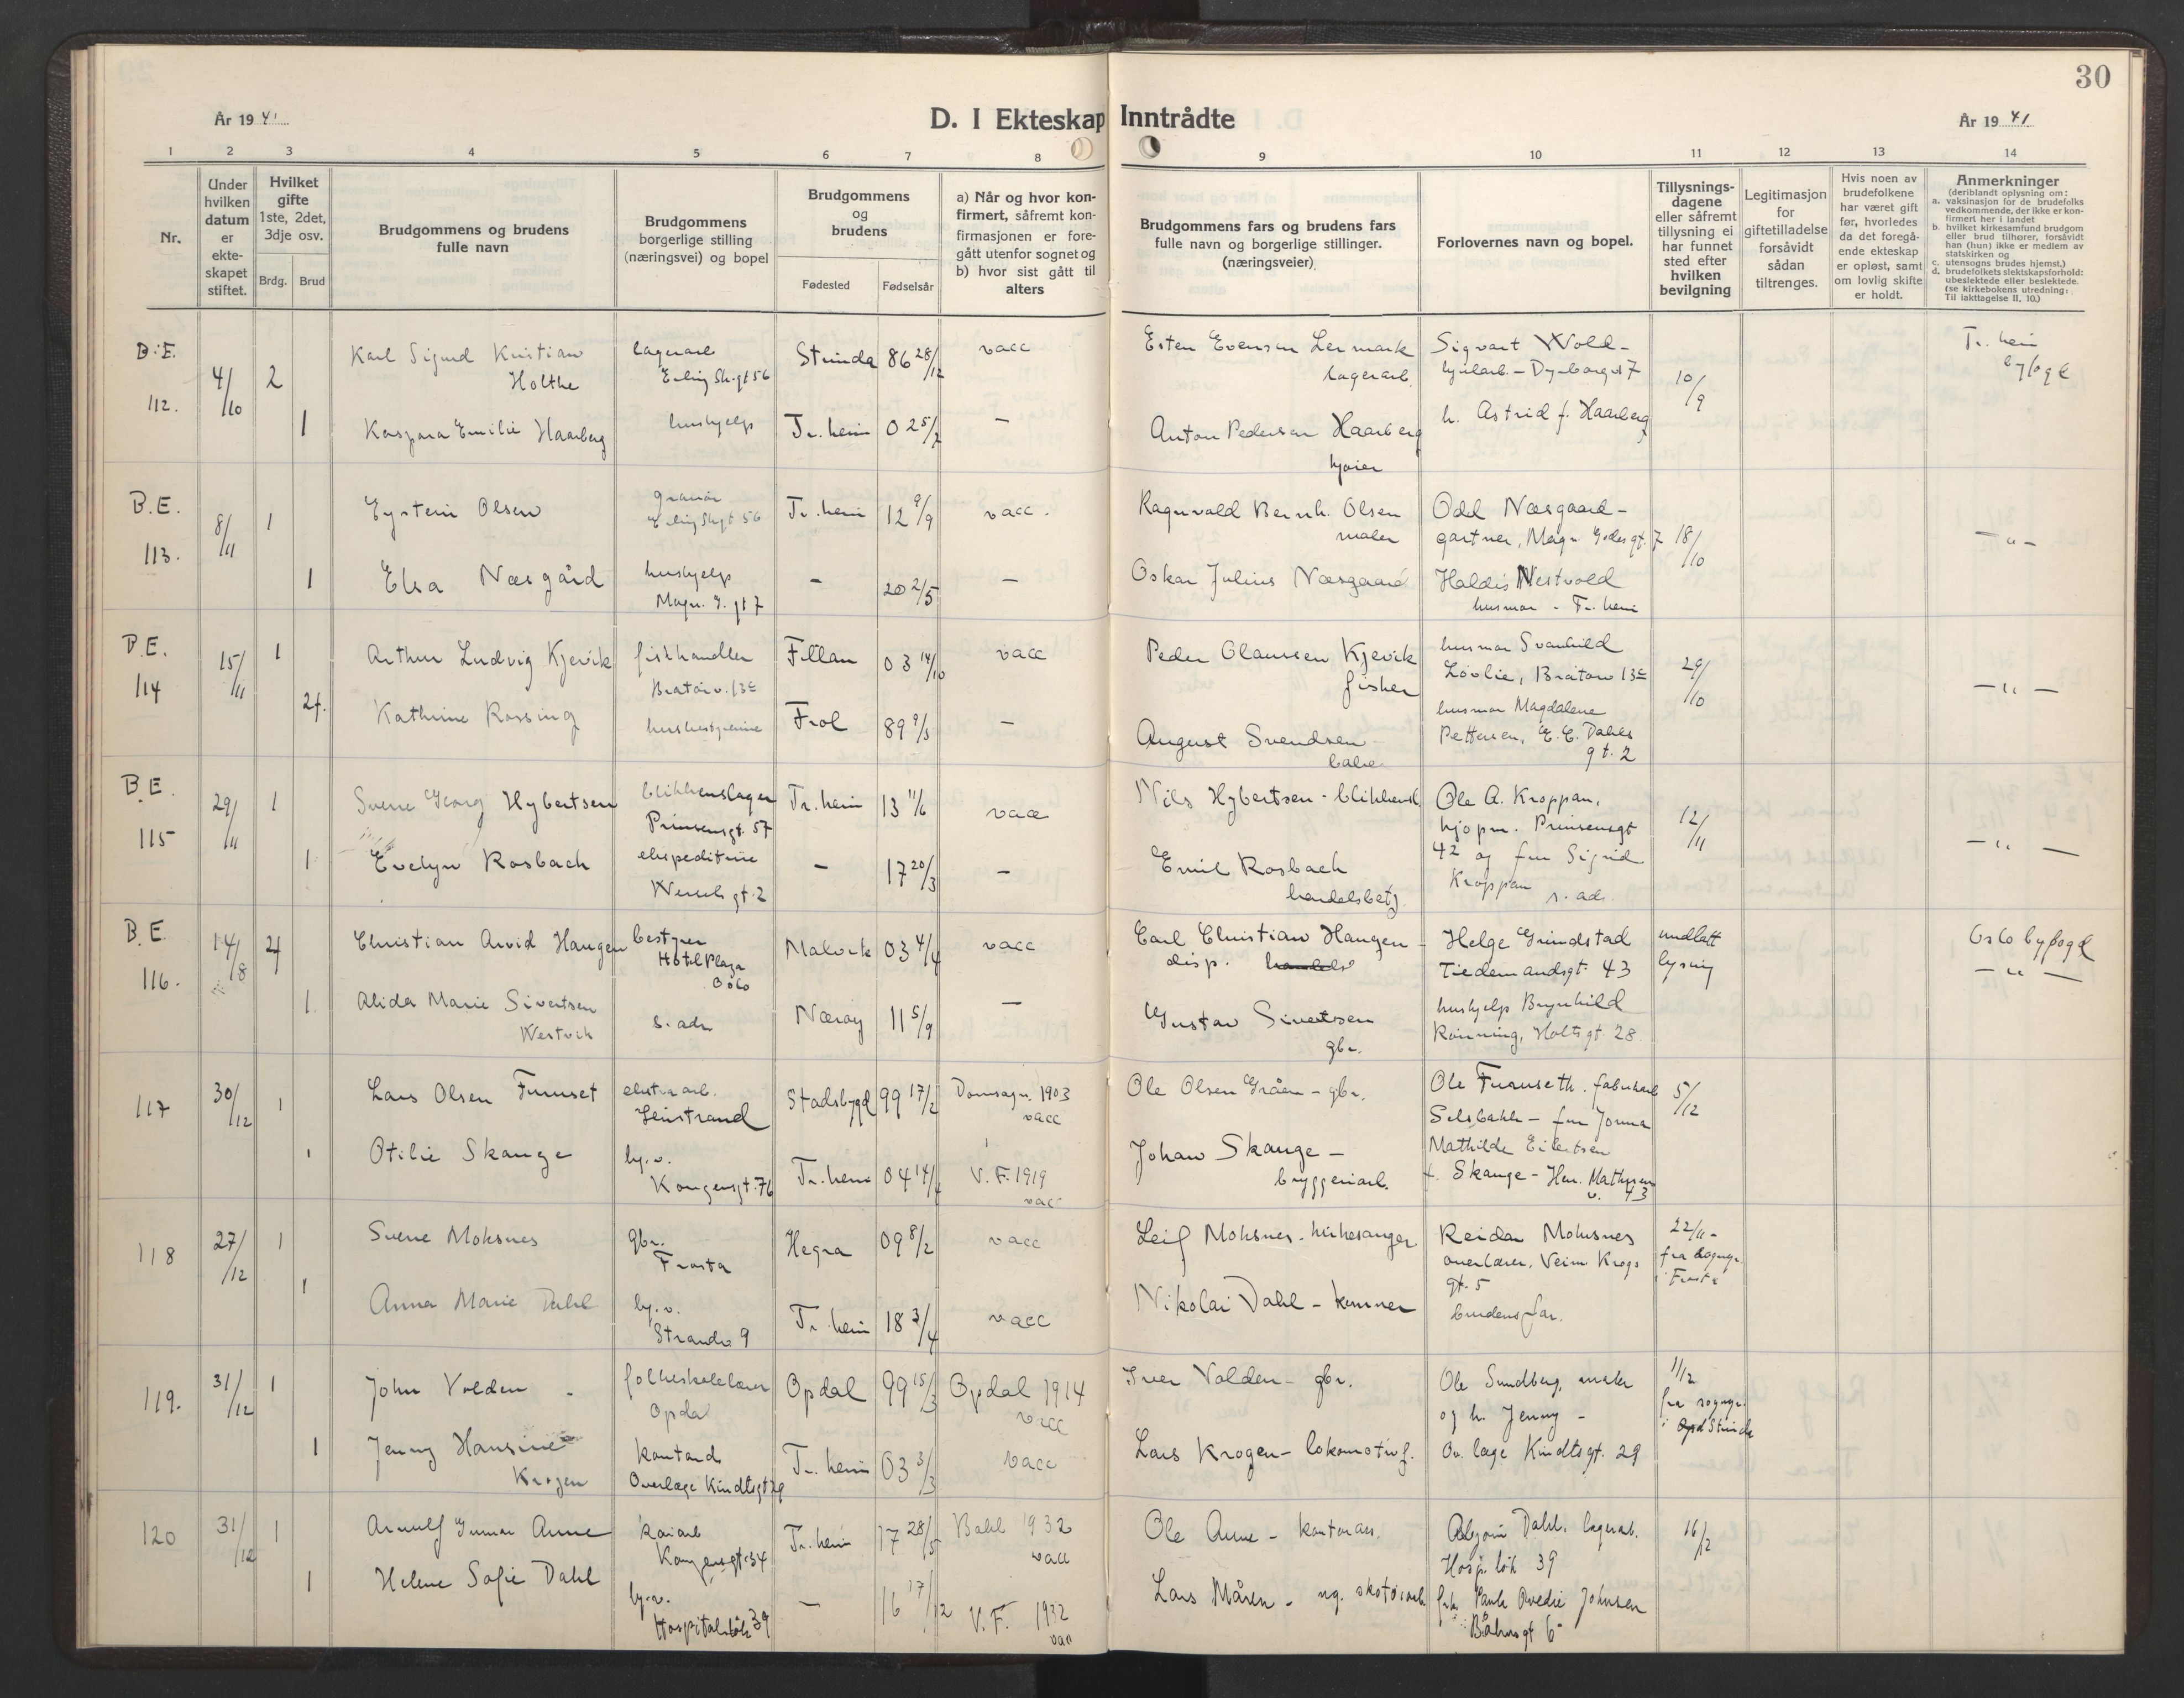 30
År 1941
D. I Ekteskap Inntrådte
År 1941
1 2 3 4 5 6 7 8 9 10 11 12 13 14
Nr.
Under hvilken datum er ekteskapet stiftet.
Hvilket gifte 1ste, 2det, 3dje osv.
Brdg. Brud
Brudgommens og brudens fulle navn
Brudgommens borgerlige stilling (næringsvei) og bopel
Brudgommens og brudens
Fødested Fødselsår
a) Når og hvor konfirmert, såfremt konfirmasjonen er foregått utenfor sognet og b) hvor sist gått til alters
Brudgommens fars og brudens fars fulle navn og borgerlige stillinger. (næringsveier)
Forlovernes navn og bopel.
Tillysningsdagene eller såfremt tillysning ei har funnet sted efter hvilken bevilgning
Legitimasjon for giftetilladelse forsåvidt sådan tiltrenges.
Hvis noen av brudefolkene har været gift før, hvorledes da det foregående ekteskap er opløst, samt om lovlig skifte er holdt.
Anmerkninger
(deriblandt oplysning om:
a. vaksinasjon for de brudefolks vedkommende, der ikke er konfirmert her i landet
b. hvilket kirkesamfund brudgom eller brud tilhører, forsåvidt han (hun) ikke er medlem av statskirken og
c. utensogns brudes hjemst.)
d. brudefolkets slektskapsforhold: ubeslektede eller beslektede.
(se kirkebokens utredning: Til iakttagelse II, 10.)
B.E. 112. 4/10 2 Karl Sigurd Kristian Holthe lagerarb Erling Sk.gt 56 Strinda 86 28/12 vacc Esten Evensen Lermark lagerarb. Sigvart Wold - Dyrborggt 7 10/9 Tr.heim byfogd
1 Kaspara Emilie Haarberg hushjelp Tr.heim 02 5/2 — Anton Pedersen Haarberg h. Astrid f. Haarberg
B.E. 113. 8/11 1 Eystein Olsen gravør Erling Skgt 56 Tr.heim 12 9/9 vacc. Ragnvald Bernh. Olsen maler Odd Næsgaard - gartner, Magn. Godes gt. 7 18/10 — „ —
1 Elsa Næsgård hushjelp Magn. G. gt 7 — 20 2/5 — Oskar Julius Næsgaard Haldis Nestvold husmor - Tr.heim
B.E. 114 15/11 1 Arthur Ludvig Kjervik fiskhandler Bratørv. 13c Fillan 03 14/10 vacc Peder Olaussen Kjervik fisker husmor Svanhild Løvlie, Bratørv 13c 29/10 — „ —
2f. Kathrine Rossing husbestyrerinne Frol 89 9/3 — August Svendsen husmor Magdalene Pettersen, E.C. Dahls gt. 2
B.E. 115 29/11 1 Sverre Georg Hybertsen blikkenslager Prinsensgt. 57 Tr.heim 13 11/6 vacc Nils Hybertsen - blikkensl. Ole A. Kroppan, kjøpm. Prinsensgt 42 og fru Sigrid Kroppan s. adr. 12/11 — „ —
1 Evelyn Rosbach ekspeditrise Wessels gt. 2 — 17 20/3 — Emil Rosbach handelsbetj.
B.E. 116. 14/8 2f Christian Arvid Haugen bestyrer Hotel Plaza Oslo Malvik 03 4/4 vacc Carl Christian Haugen - disp. Helge Grindstad Tiedemandsgt. 43 undlatt lysning Oslo byfogd — „ —
1 Alida Marie Sivertsen Westvik s. adr Nærøy 11 5/9 — Gustav Sivertsen gbr. hushjelp Brynhild Rønning, Holtegt. 28
117 30/12 1 Lars Olsen Furuset ekstraarb. Leinstrand Stadsbygd 99 17/2 Domsogn. 1903 vacc Ole Olsen Gråen - gbr. Ole Furuseth. fabrikarb Selsbakk - fru Jonna Mathilde Eilertsen f. Skauge - Hen. Mathesens v. 43 5/12
1 Otilie Skauge hj.v. Kongensgt. 76 Tr.heim 04 V.F. 1919 vacc Johan Skauge - bryggeriarb.
118 27/12 1 Sverre Moksnes gbr. Frosta Hegra 09 8/2 vacc Leif Moksnes. kirkesanger Reidar Moksnes overlærer, Veim. Krogs gt. 5 22/11 - fra sognepr. i Frosta
1 Anna Marie Dahl hj.v. Strandv 9 Tr.heim 18 3/4 vacc Nikolai Dahl - kemner brudens far.
119. 31/12 1 John Volden folkeskolelærer Opdal Opdal 99 15/3 Opdal 1914 vacc Iver Volden - gbr. Ole Sundberg, maler og h. Jenny - Ov. læge Kindtsgt. 29 11/12 fra sognepr. i Strinda
1 Jenny Hansine Krogen kontord Overlæge Kindtsgt 29 Tr.heim 03 3/3 vacc Lars Krogen - lokomotivf.
120 31/12 1 Arnulf Gunnar Aune kaiarb Kongensgt. 34 Tr.heim 17 28/5 Bakl 1932 vacc Ole Aune - kontorass. Asbjørn Dahl, lagerarb. Hosp. løk 39 16/12
1 Helene Sofie Dahl hj.v. Hospitalsløk 39 — 16 17/12 V.F. 1932 vac Lars Måren - Johnsen